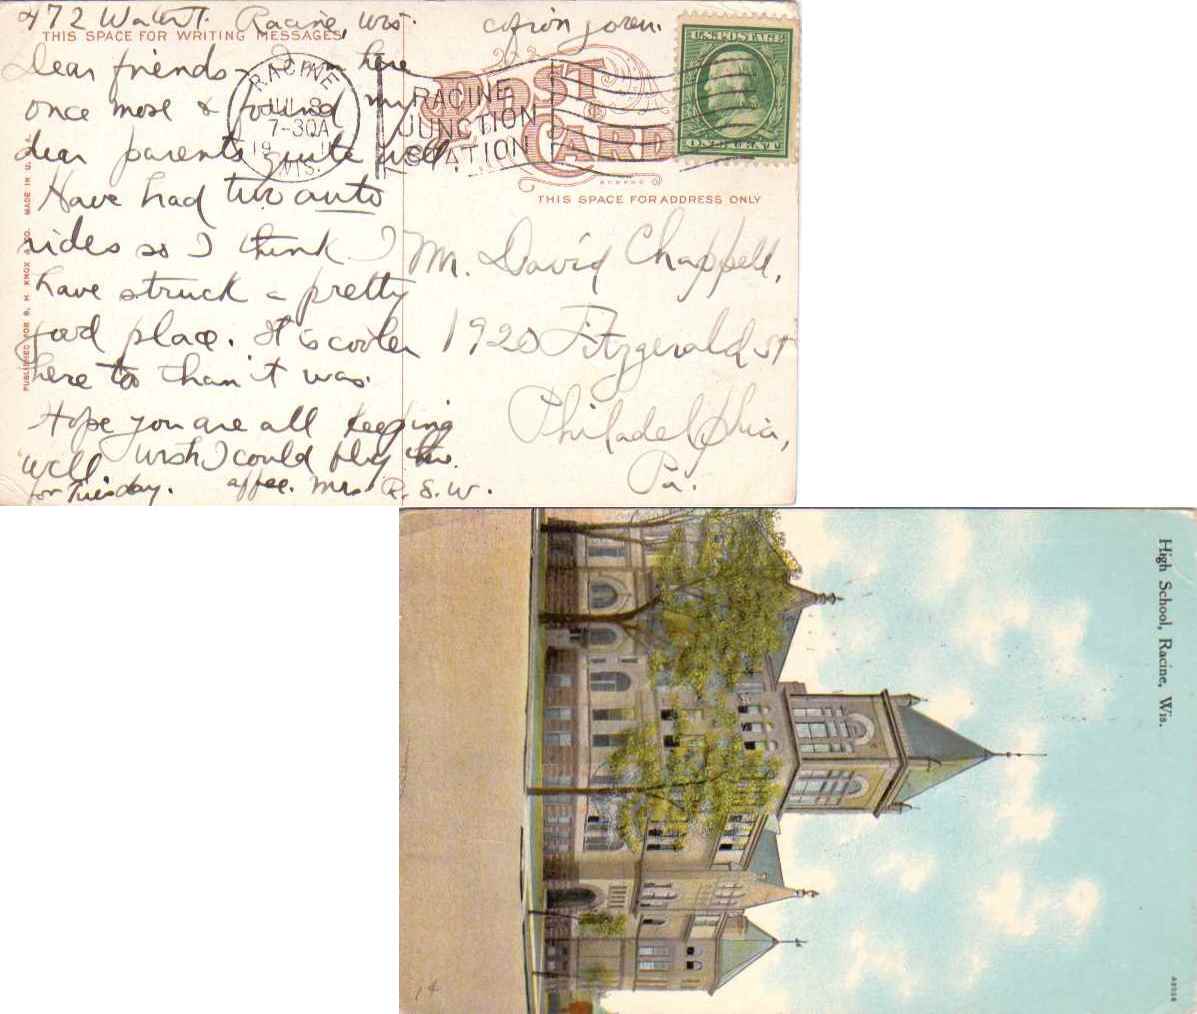 472 Water St. Racine, Wis.
THIS SPACE FOR WRITING MESSAGES
Dear friends- I am here
once more & found my
dear parents quite well.
Have had two auto
rides so I think I
have struck a pretty
good place. It is cooler
here too than it was.
Hope you are all keeping
well. Wish I could
for Tuesday. affec. Mrs. R. S. W.
PUBLISHED FOR S. H. KNOX & CO. MADE IN U.
RACINE
JUL 8
7-30A
19 11
WIS.
RACINE
JUNCTION
STATION
POST
CARD
U.S. POSTAGE
ONE CENT
THIS SPACE FOR ADDRESS ONLY
M. David Chappell,
1920 Fitzgerald St
Philadelphia,
Pa.
High School, Racine, Wis.